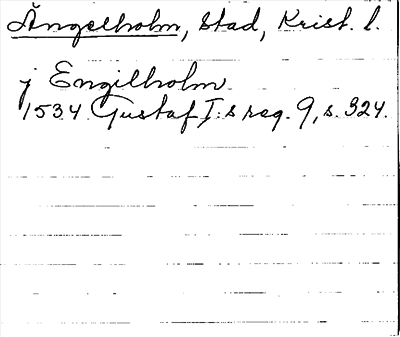 Ängelholm, Stad, Krist. l.
j Engilholm
1534 Gustaf I:s reg. 9, s. 324.